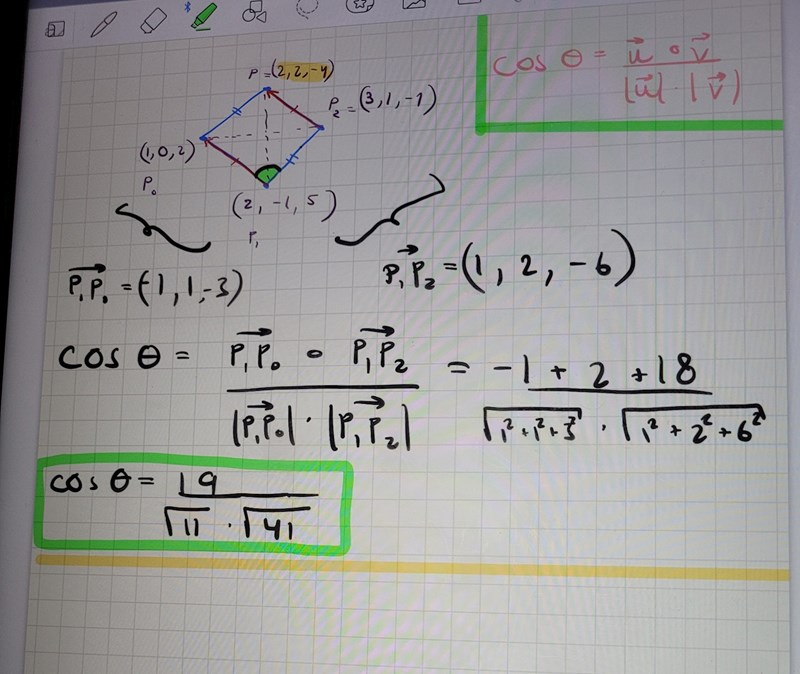 cos θ = u⃗ ∘ v⃗ / |u⃗| · |v⃗|
P = (2, 2, -4)
P₂ = (3, 1, -1)
(1, 0, 2)
P₀
(2, -1, 5)
P₁
P₁P₀ = (-1, 1, -3)
P₁P₂ = (1, 2, -6)
cos θ = P₁P₀ ∘ P₁P₂ / |P₁P₀| · |P₁P₂| = -1 + 2 + 18 / √1² + 1² + 3² · √1² + 2² + 6²
cos θ = 19 / √11 · √41